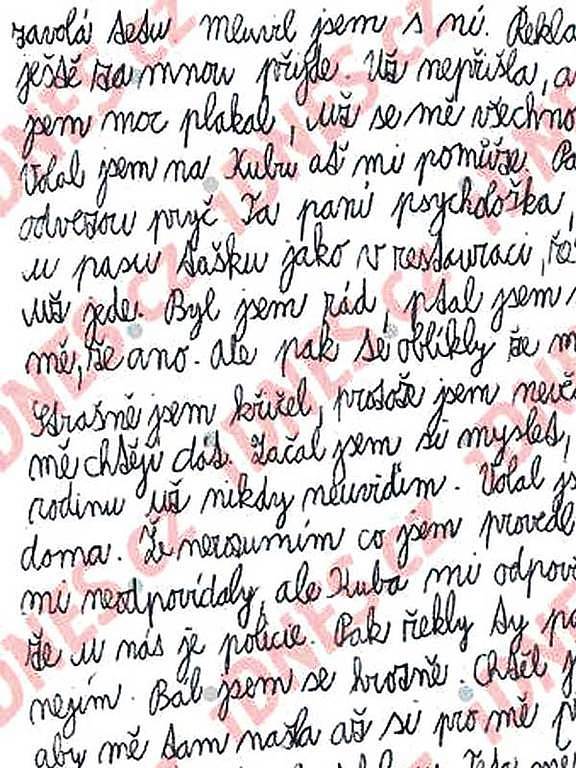 zavolá tetu mluvil jsem s ní. Řekla
ještě za mnou přijde. Už nepřišla, a
jsem moc plakal, už se mě všechno
Volal jsem na Kubu ať mi pomůže. Pa
odvezou pryč Ta paní psycholožka,
u pasu tašku jako v restauraci, ře
už jede. Byl jsem rád, ptal jsem
mě, že ano. ale pak se oblíkly že m
Strašně jsem křičel, protože jsem nevě
mě chtějí dát. Začal jsem si myslet,
rodinu už nikdy neuvidím. Volal js
doma. Že nerozumím co jsem provedl
mi neodpovídaly, ale Kuba mi odpově
že u nás je policie. Pak řekly ty pa
nejím. Bál jsem se hrozně. Chtěl j
aby mě tam našla ať si pro mě př
iDNES.cz